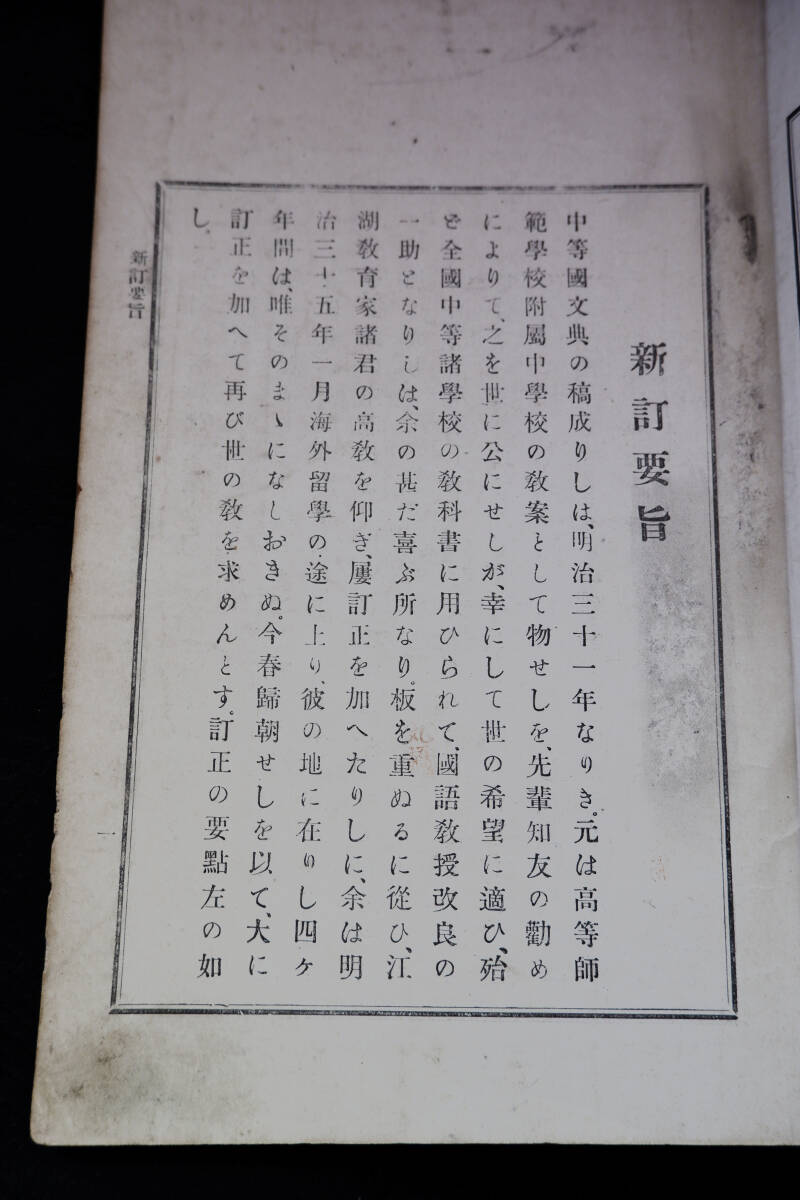 新訂要旨
中等國文典の稿成りしは、明治三十一年なりき。元は高等師
範學校附屬中學校の敎案として物せしを、先輩知友の勸め
によりて、之を世に公にせしが、幸にして世の希望に適ひ、殆
ど全國中等諸學校の敎科書に用ひられて、國語敎授改良の
一助となりしは、余の甚だ喜ぶ所なり。板を重ぬるに從ひ、江
湖敎育家諸君の高敎を仰ぎ、屢訂正を加へたりしに、余は明
治三十五年一月海外留學の途に上り、彼の地に在りし四ヶ
年間は、唯そのまゝになしおきぬ。今春歸朝せしを以て、大に
訂正を加へて再び世の敎を求めんとす。訂正の要點左の如
し。
新訂要旨
一